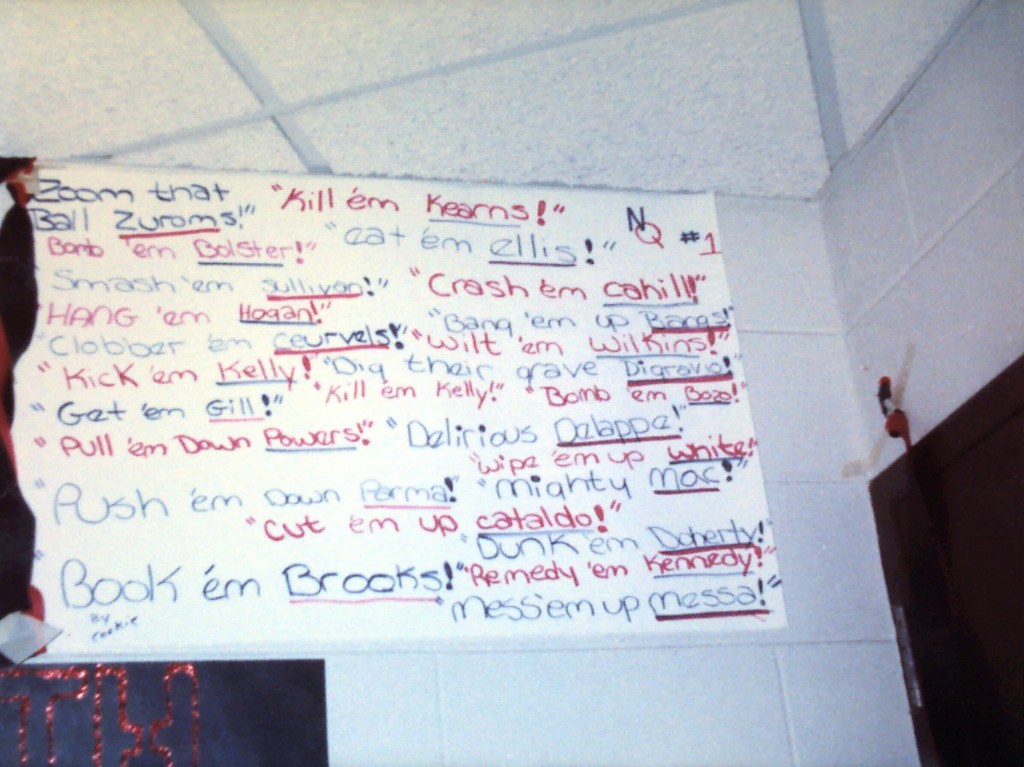 Zoom that
Ball Zuroms!"
"Kill 'em Kearns!"
NQ #1
Bomb 'em Bolster!"
"eat 'em ellis!"
"Smash 'em Sullivan!"
"Crash 'em cahill!"
HANG 'em Hogan!"
"Bang 'em up Bangs!"
"Clobber 'em ceurvels!"
"Wilt 'em Wilkins!"
"Kick 'em Kelly!
"Dig their grave Digravio!"
"Kill 'em Kelly!"
"Bomb 'em Bozo!"
"Get 'em Gill!"
"Pull 'em Down Powers!"
"Delirious Delappe!"
"Wipe 'em up White!"
"Push 'em Down Parma!"
"Mighty Mac!"
"Cut 'em up cataldo!"
"Dunk 'em Doherty!"
"Book 'em Brooks!"
"Remedy 'em Kennedy!"
"mess'em up messa!"
By
cookie